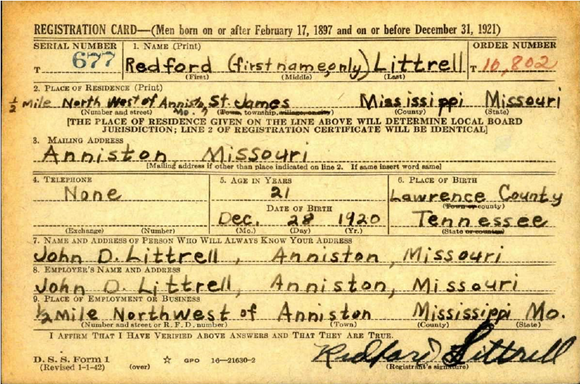 REGISTRATION CARD—(Men born on or after February 17, 1897 and on or before December 31, 1921)
SERIAL NUMBER 1. NAME (Print) ORDER NUMBER
T 677 Redford (first name only) Littrell T 10,802
(First) (Middle) (Last)
2. PLACE OF RESIDENCE (Print)
½ Mile North West of Anniston, Mo., St. James Mississippi Missouri
(Number and street) (Town, township, village, or city) (County) (State)
[THE PLACE OF RESIDENCE GIVEN ON THE LINE ABOVE WILL DETERMINE LOCAL BOARD
JURISDICTION; LINE 2 OF REGISTRATION CERTIFICATE WILL BE IDENTICAL]
3. MAILING ADDRESS
Anniston, Missouri
[Mailing address if other than place indicated on line 2. If same insert word same]
4. TELEPHONE 5. AGE IN YEARS 6. PLACE OF BIRTH
None 21 Lawrence County
DATE OF BIRTH (Town or county)
Dec. 28 1920 Tennessee
(Exchange) (Number) (Mo.) (Day) (Yr.) (State or country)
7. NAME AND ADDRESS OF PERSON WHO WILL ALWAYS KNOW YOUR ADDRESS
John D. Littrell, Anniston, Missouri
8. EMPLOYER'S NAME AND ADDRESS
John D. Littrell, Anniston, Missouri
9. PLACE OF EMPLOYMENT OR BUSINESS
½ Mile Northwest of Anniston Mississippi Mo.
(Number and street or R. F. D. number) (Town) (County) (State)
I AFFIRM THAT I HAVE VERIFIED ABOVE ANSWERS AND THAT THEY ARE TRUE.
Redford Littrell
D. S. S. Form 1 GPO 16—21630-2 (Registrant's signature)
(Revised 1-1-42) (over)